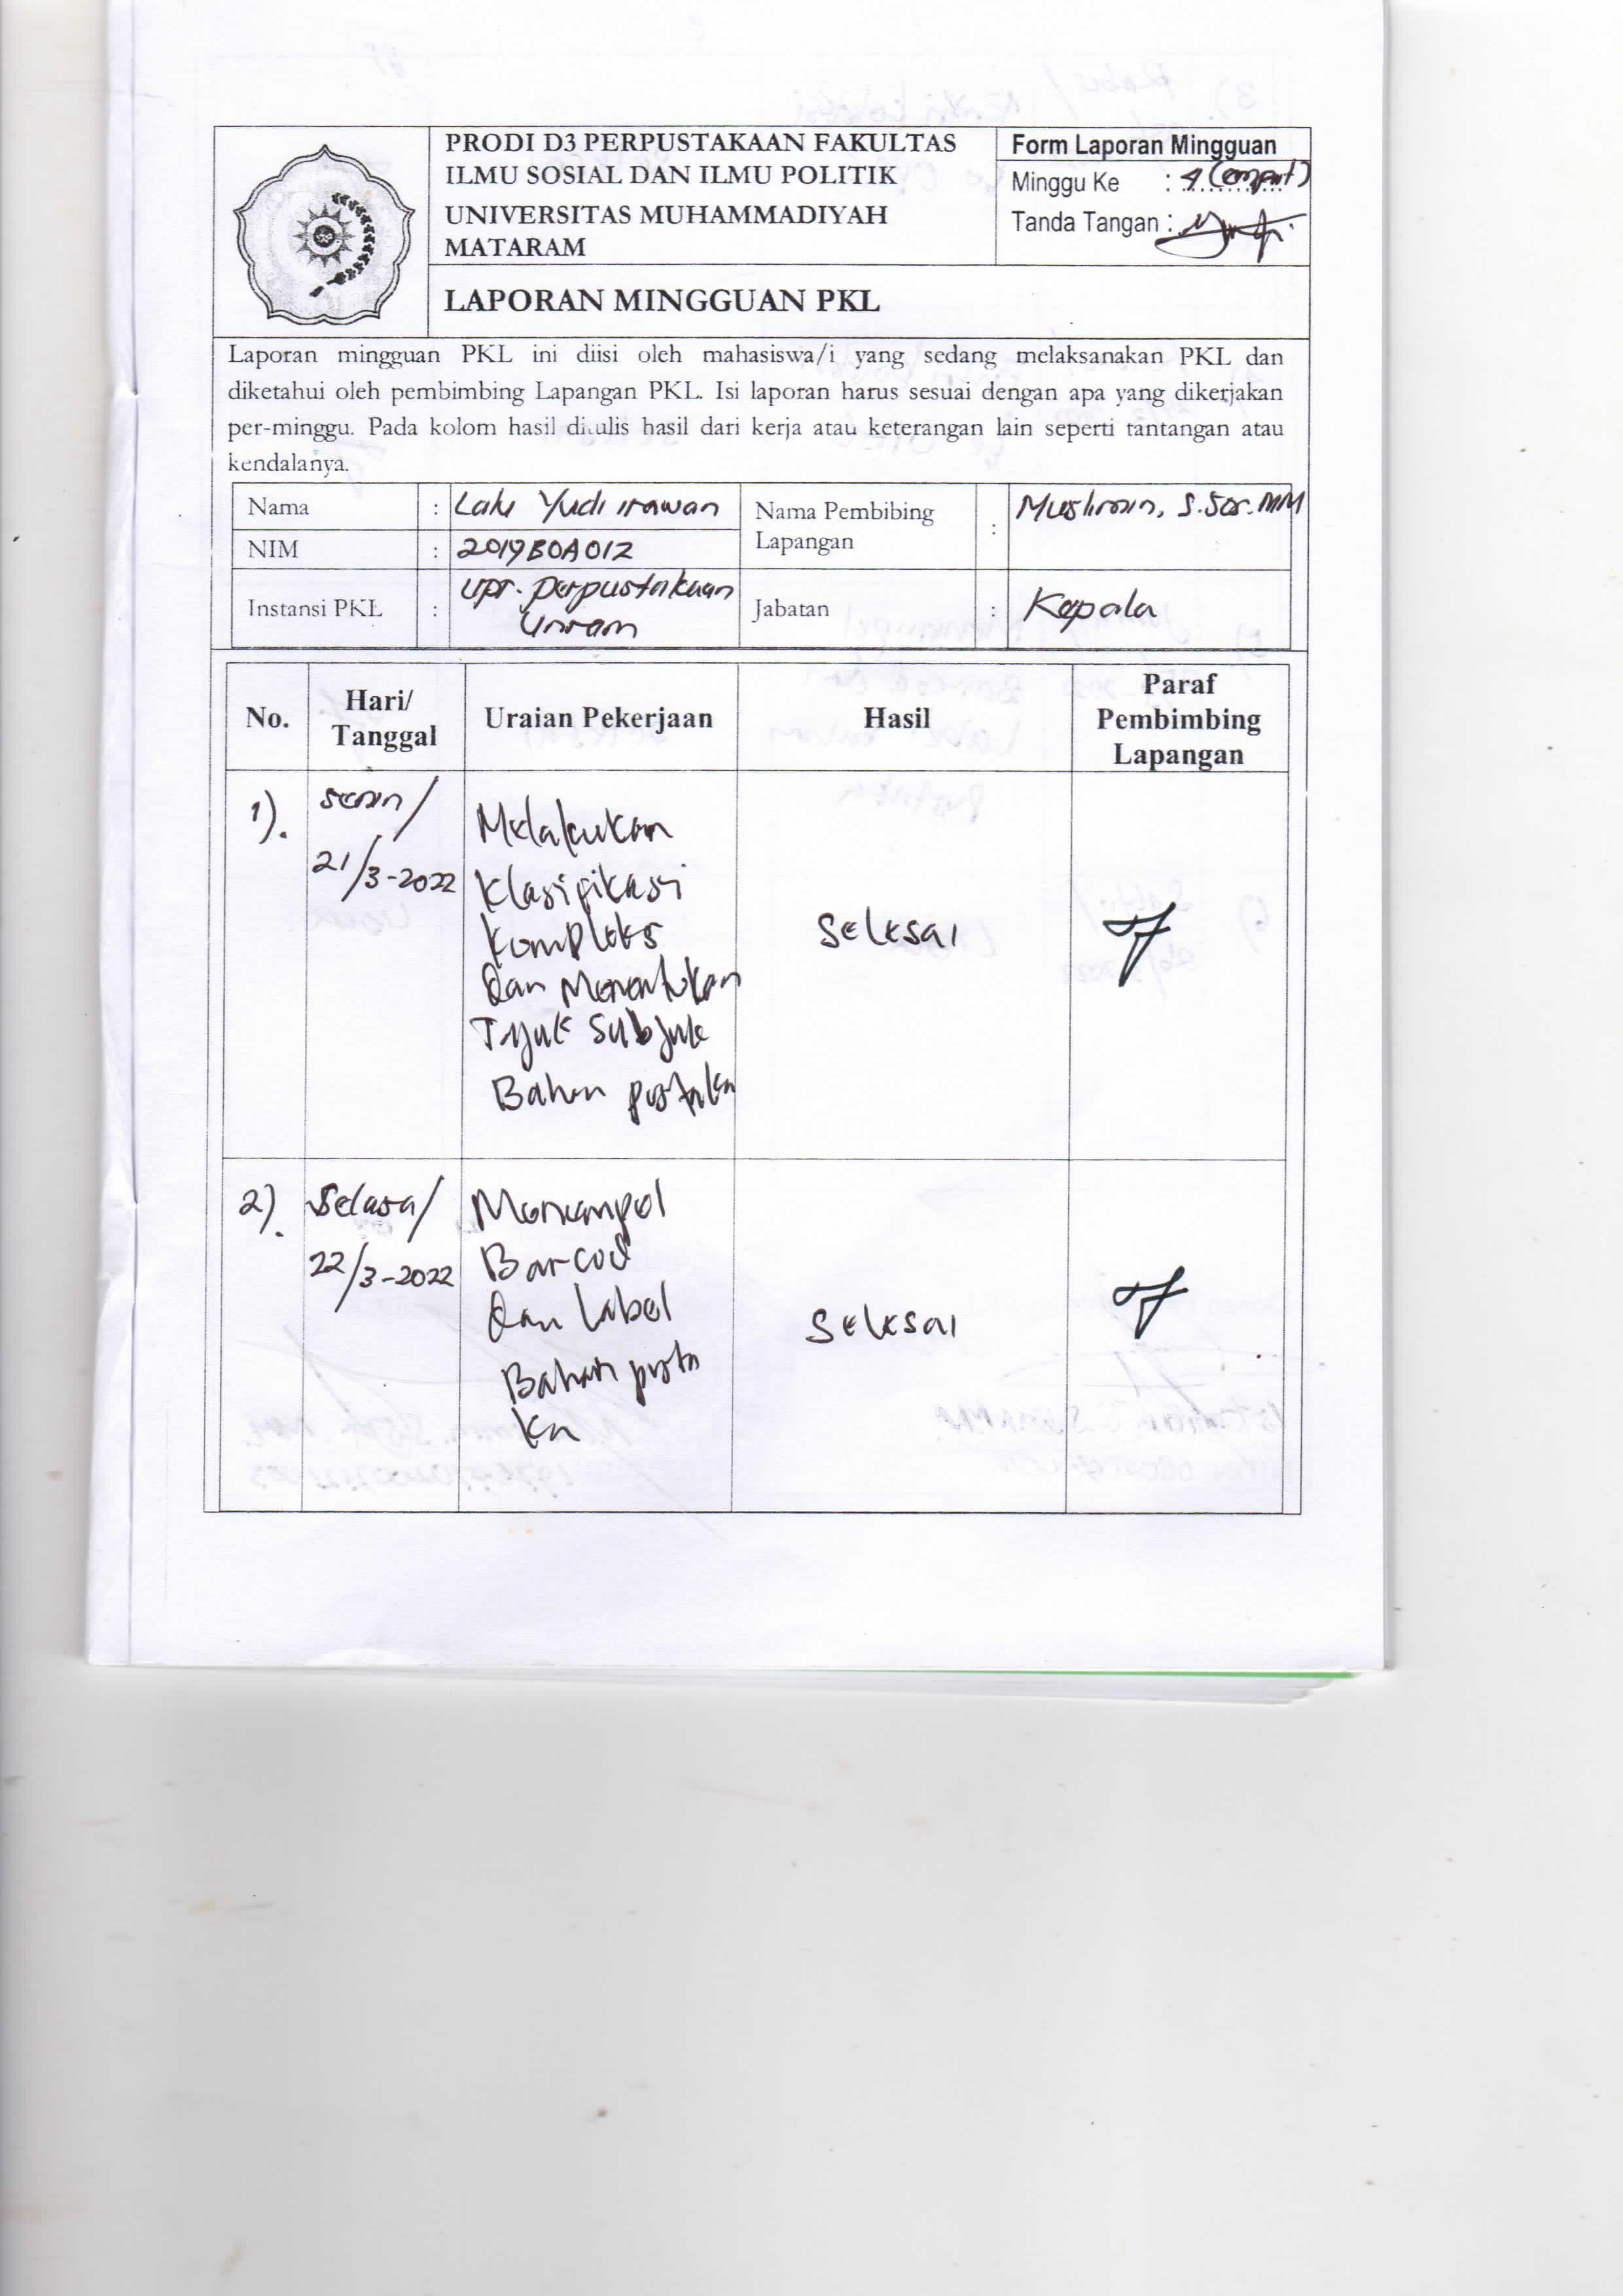 PRODI D3 PERPUSTAKAAN FAKULTAS
ILMU SOSIAL DAN ILMU POLITIK
UNIVERSITAS MUHAMMADIYAH
MATARAM
Form Laporan Mingguan
Minggu Ke : 4 (empat)
Tanda Tangan :
LAPORAN MINGGUAN PKL
Laporan mingguan PKL ini diisi oleh mahasiswa/i yang sedang melaksanakan PKL dan
diketahui oleh pembimbing Lapangan PKL. Isi laporan harus sesuai dengan apa yang dikerjakan
per-minggu. Pada kolom hasil ditulis hasil dari kerja atau keterangan lain seperti tantangan atau
kendalanya.
Nama : Lalu Yudi irawan
NIM : 2019B0A012
Nama Pembibing
Lapangan : Muslimin, S.Sos.MM
Instansi PKL : UPT. Perpustakaan
Unram
Jabatan : Kepala
No.
Hari/
Tanggal
Uraian Pekerjaan
Hasil
Paraf
Pembimbing
Lapangan
1).
senin/
21/3-2022
Melakukan
Klasifikasi
Kompleks
dan Menentukan
Tajuk Subjek
Bahan pustaka
Selesai
2).
Selasa/
22/3-2022
Menempel
Barcod
dan Label
Bahan pusta
ka
Selesai